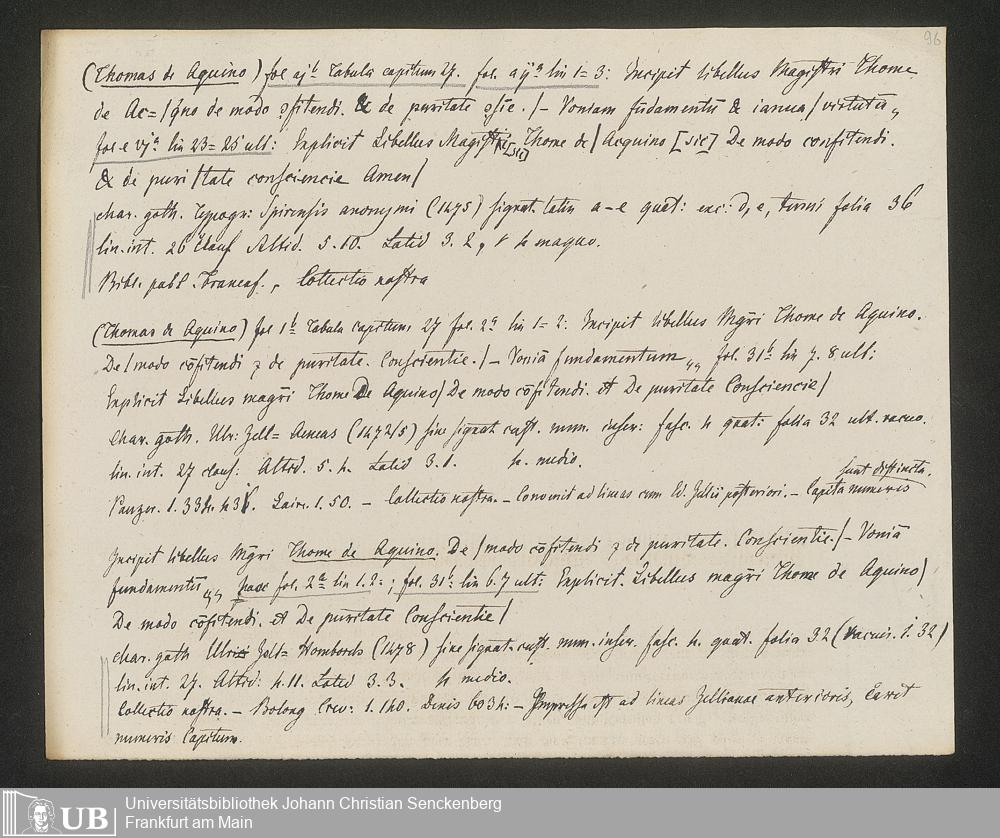 96
(Thomas de Aquino) fol aj b Tabula capitum 27. fol. a ij a lin 1=3: Incipit libellus Magistri Thome
de Ac=/qno de modo ꝯfitendi. & de puritate ꝯsĉie. /– Voniam fūdamentū & ianua / virtutū,,
fol e vj a lin 23=25 ult: Explicit Libellus Magistri [sic] Thome de / Acquino [sic] De modo confitendi.
& de puri/tate consciencie Amen/
char. goth. Typogr: Spirensis anonymi (1475) signat. latin a–e quat: exc: d, e, terni folia 36
lin. int. 26 clauf Altid. 5.10. Latid 3.2,
Bibl. publ. Francof., Collectio nostra
(Thomas de Aquino) fol 1 b Tabula capitum 27 fol. 2 a lin 1=2: Incipit libellus Mgr̄i Thome de Aquino.
De / modo cōfitendi ⁊ de puritate. Conscientie. /– Voniā fundamentum,, fol. 31 b lin 7. 8 ult:
Explicit Libellus magr̄i Thome De Aquino / De modo cōfitendi. et De puritate Consciencie /
char. goth. Ulr: Zell= Aeneas (1472/5) sine signat. cust. num. inser: fasc. 4 quat: folia 32 ult. vacuo.
lin. int. 27 clauf: Altid. 5.4. Latid 3.1. 4. medio.
Panzer. 1.334. 436. Laire. 1.50. – Collectio nostra. – Convenit ad lineas cum Ed. Zellii posteriori. – Capita numeris
sunt distincta.
Incipit libellus Mgr̄i Thome de Aquino. De / modo cōfitendi ⁊ de puritate. Conscientie. /– Voniā
fundamentū,, haec fol. 2 a lin 1. 2.; fol. 31 b lin 6. 7 ult: Explicit. Libellus magr̄i Thome de Aquino /
De modo cōfitendi. et De puritate Conscientie /
char. goth Ulrici Zell= Homborch (1478) sine signat. cust. num. inser. fasc. 4. quat. folia 32 (vacuis. 1. 32)
lin. int. 27. Altid: 4.11. Latid 3.3. 4 medio.
Collectio nostra. – Bolong Crev: 1.140. Denis 6034: – Impressa est ad lineas Zellianae anterioris, Caret
numeris Capitum.
UB
Universitätsbibliothek Johann Christian Senckenberg
Frankfurt am Main